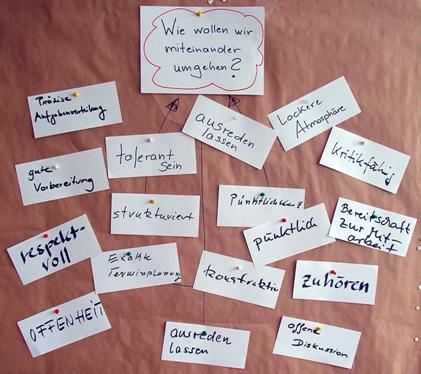 Wie wollen wir
miteinander
umgehen?
Präzise
Aufgabenverteilung
ausreden
lassen
Lockere
Atmosphäre
tolerant
sein
kritikfähig
gute
Vorbereitung
strukturiert
Pünktlichkeit
Bereitschaft
zur Mit-
arbeit
respekt-
voll
Exakte
Terminplanung
pünktlich
konstruktiv
zuhören
OFFENHEIT
ausreden
lassen
offene
Diskussion